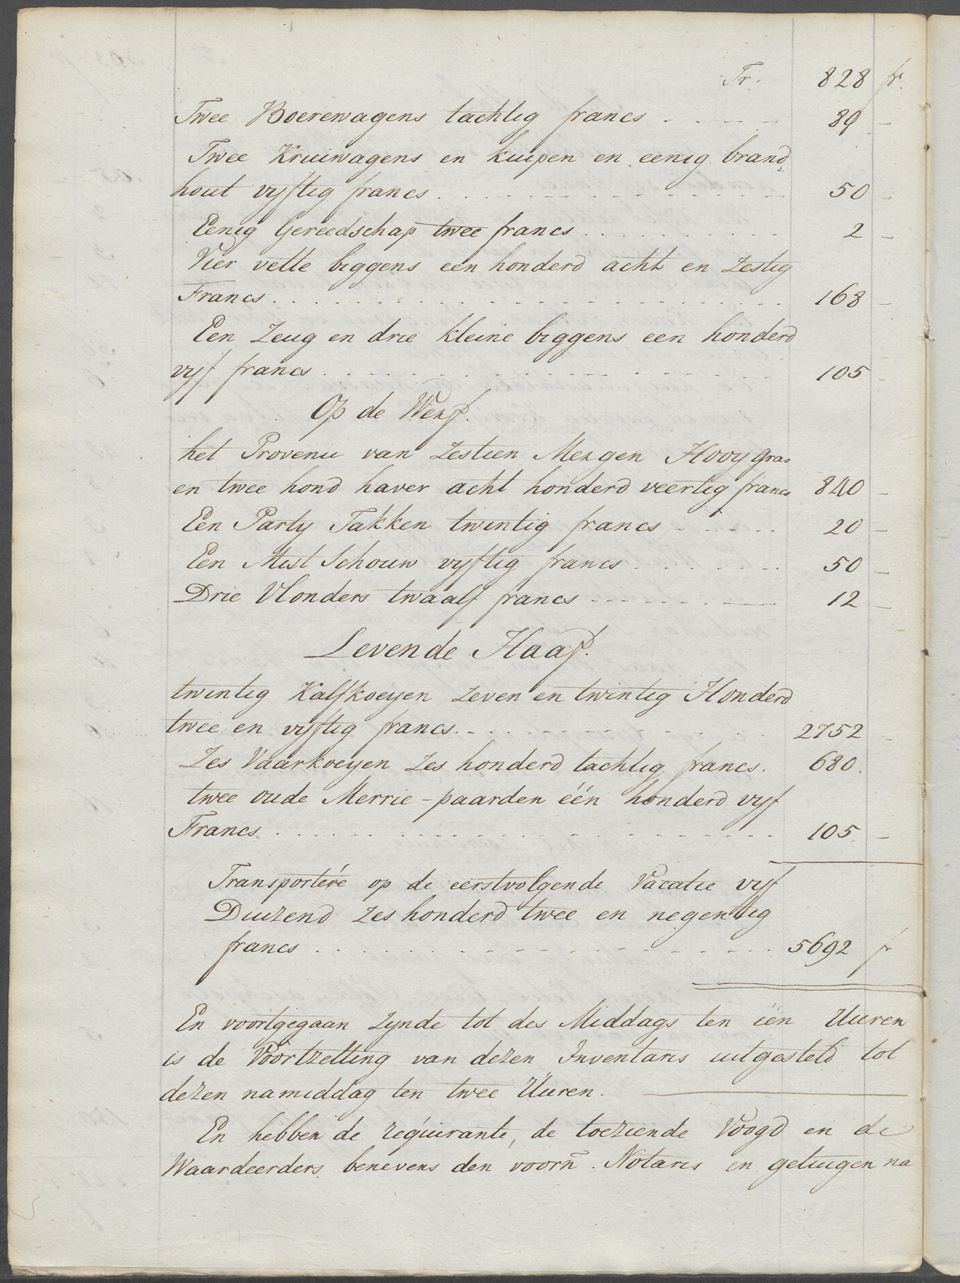 Tr. 828 fr.
Twee Boerewagens tachtig francs - - - - - 80 -
Twee Kruiwagens en kuipen en eenig brand
hout vyftig francs . . . . . . . . . . . . 50 -
Eenig Gereedschap twee francs . . . . . . . . 2 -
Vier vette biggens een honderd acht en Zestig
Francs . . . . . . . . . . . . . . . . . . 168 -
Een Zeug en drie kleine biggens een honderd
vyf francs . . . . . . . . . . . . . . . . 105 -
Op de Werf
het Provenu van Zestien Mergen Hooygras
en twee hond haver acht honderd veertig francs 840 -
Een Party Takken twintig francs . . . . . 20 -
Een Mest Schouw vyftig francs . . . . . . 50 -
Drie Vlonders twaalf francs - - - - - - - 12 -
Levende Haaf.
twintig Kalfkoeijen Zeven en twintig Honderd
twee en vyftig francs - - - - - - - - - 2752 -
Zes Vaarkoeijen Zes honderd tachtig francs. 680.
twee oude Merrie-paarden één honderd vyf
Francs . . . . . . . . . . . . . . . . . 105 -
Transportére op de eerstvolgende Vacatie vyf
Duizend Zes honderd twee en negentig
francs . . . . . . . . . . . . . . . . 5692 fr
En voortgegaan Zynde tot des Middags ten één Uuren
is de Voortzetting van dezen Inventaris uitgesteld tot
dezen namiddag ten twee Uuren.
En hebben de requirante, de toeziende Voogd en de
Waardeerders benevens den voorn. Notaris en getuigen na